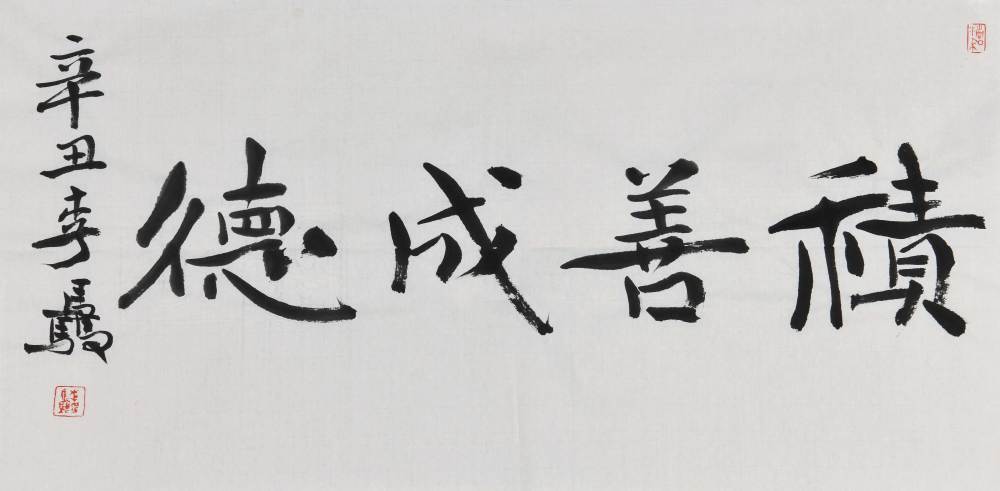 積善成德
辛丑李